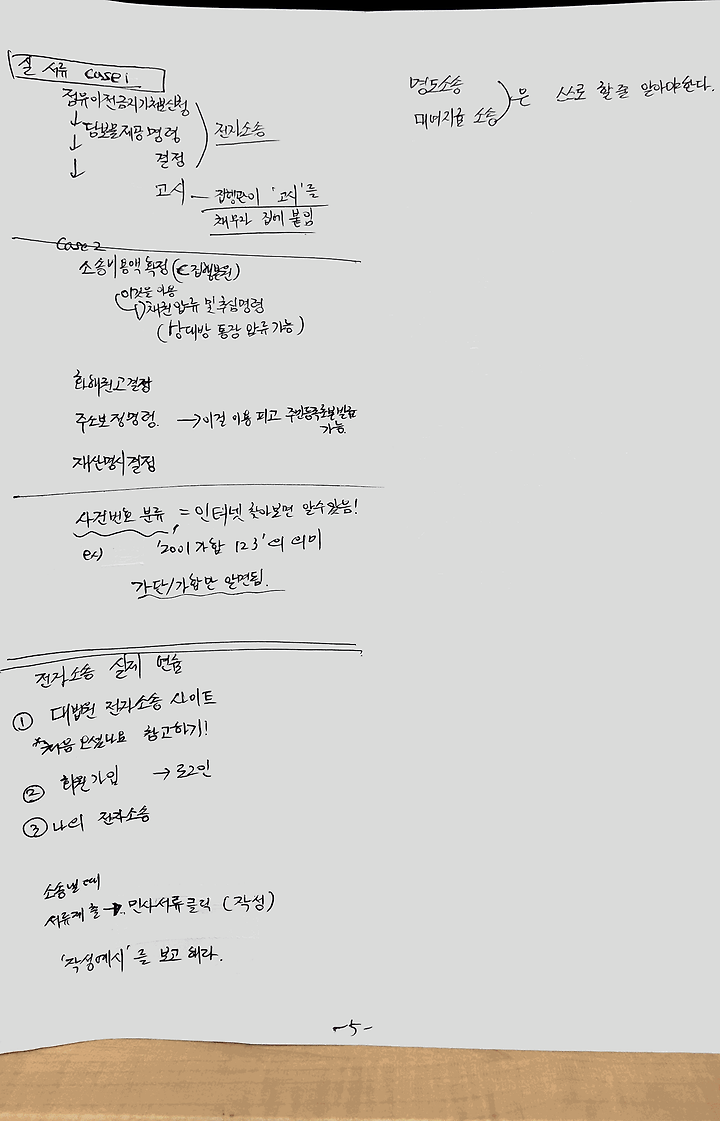 실 서류 case 1
점유이전금지가처분신청
↓ 담보물제공명령
↓ 결정
전자소송
↓ 고시 — 집행관이 '고시'를
채무자 집에 붙임
case 2
소송비용액 확정 (
이것을 이용
채권압류 및 추심명령
(상대방 통장 압류 가능)
화해권고결정
주소보정명령. → 이걸 이용 피고 주민등록초본발급
가능.
재산명시결정
사건번호 분류 = 인터넷 찾아보면 알수있음!
ex) '2001가합 123'의 의미
가단/가합만 알면됨.
전자소송 실제 연습
① 대법원 전자소송 사이트
*처음 오셨나요 참고하기!
② 회원가입 → 로그인
③ 나의 전자소송
소송낼때
서류제출 → 민사서류 클릭 (작성)
'작성예시'를 보고 해라.
-5-
명도소송
소송
은 스스로 할줄 알아야한다.